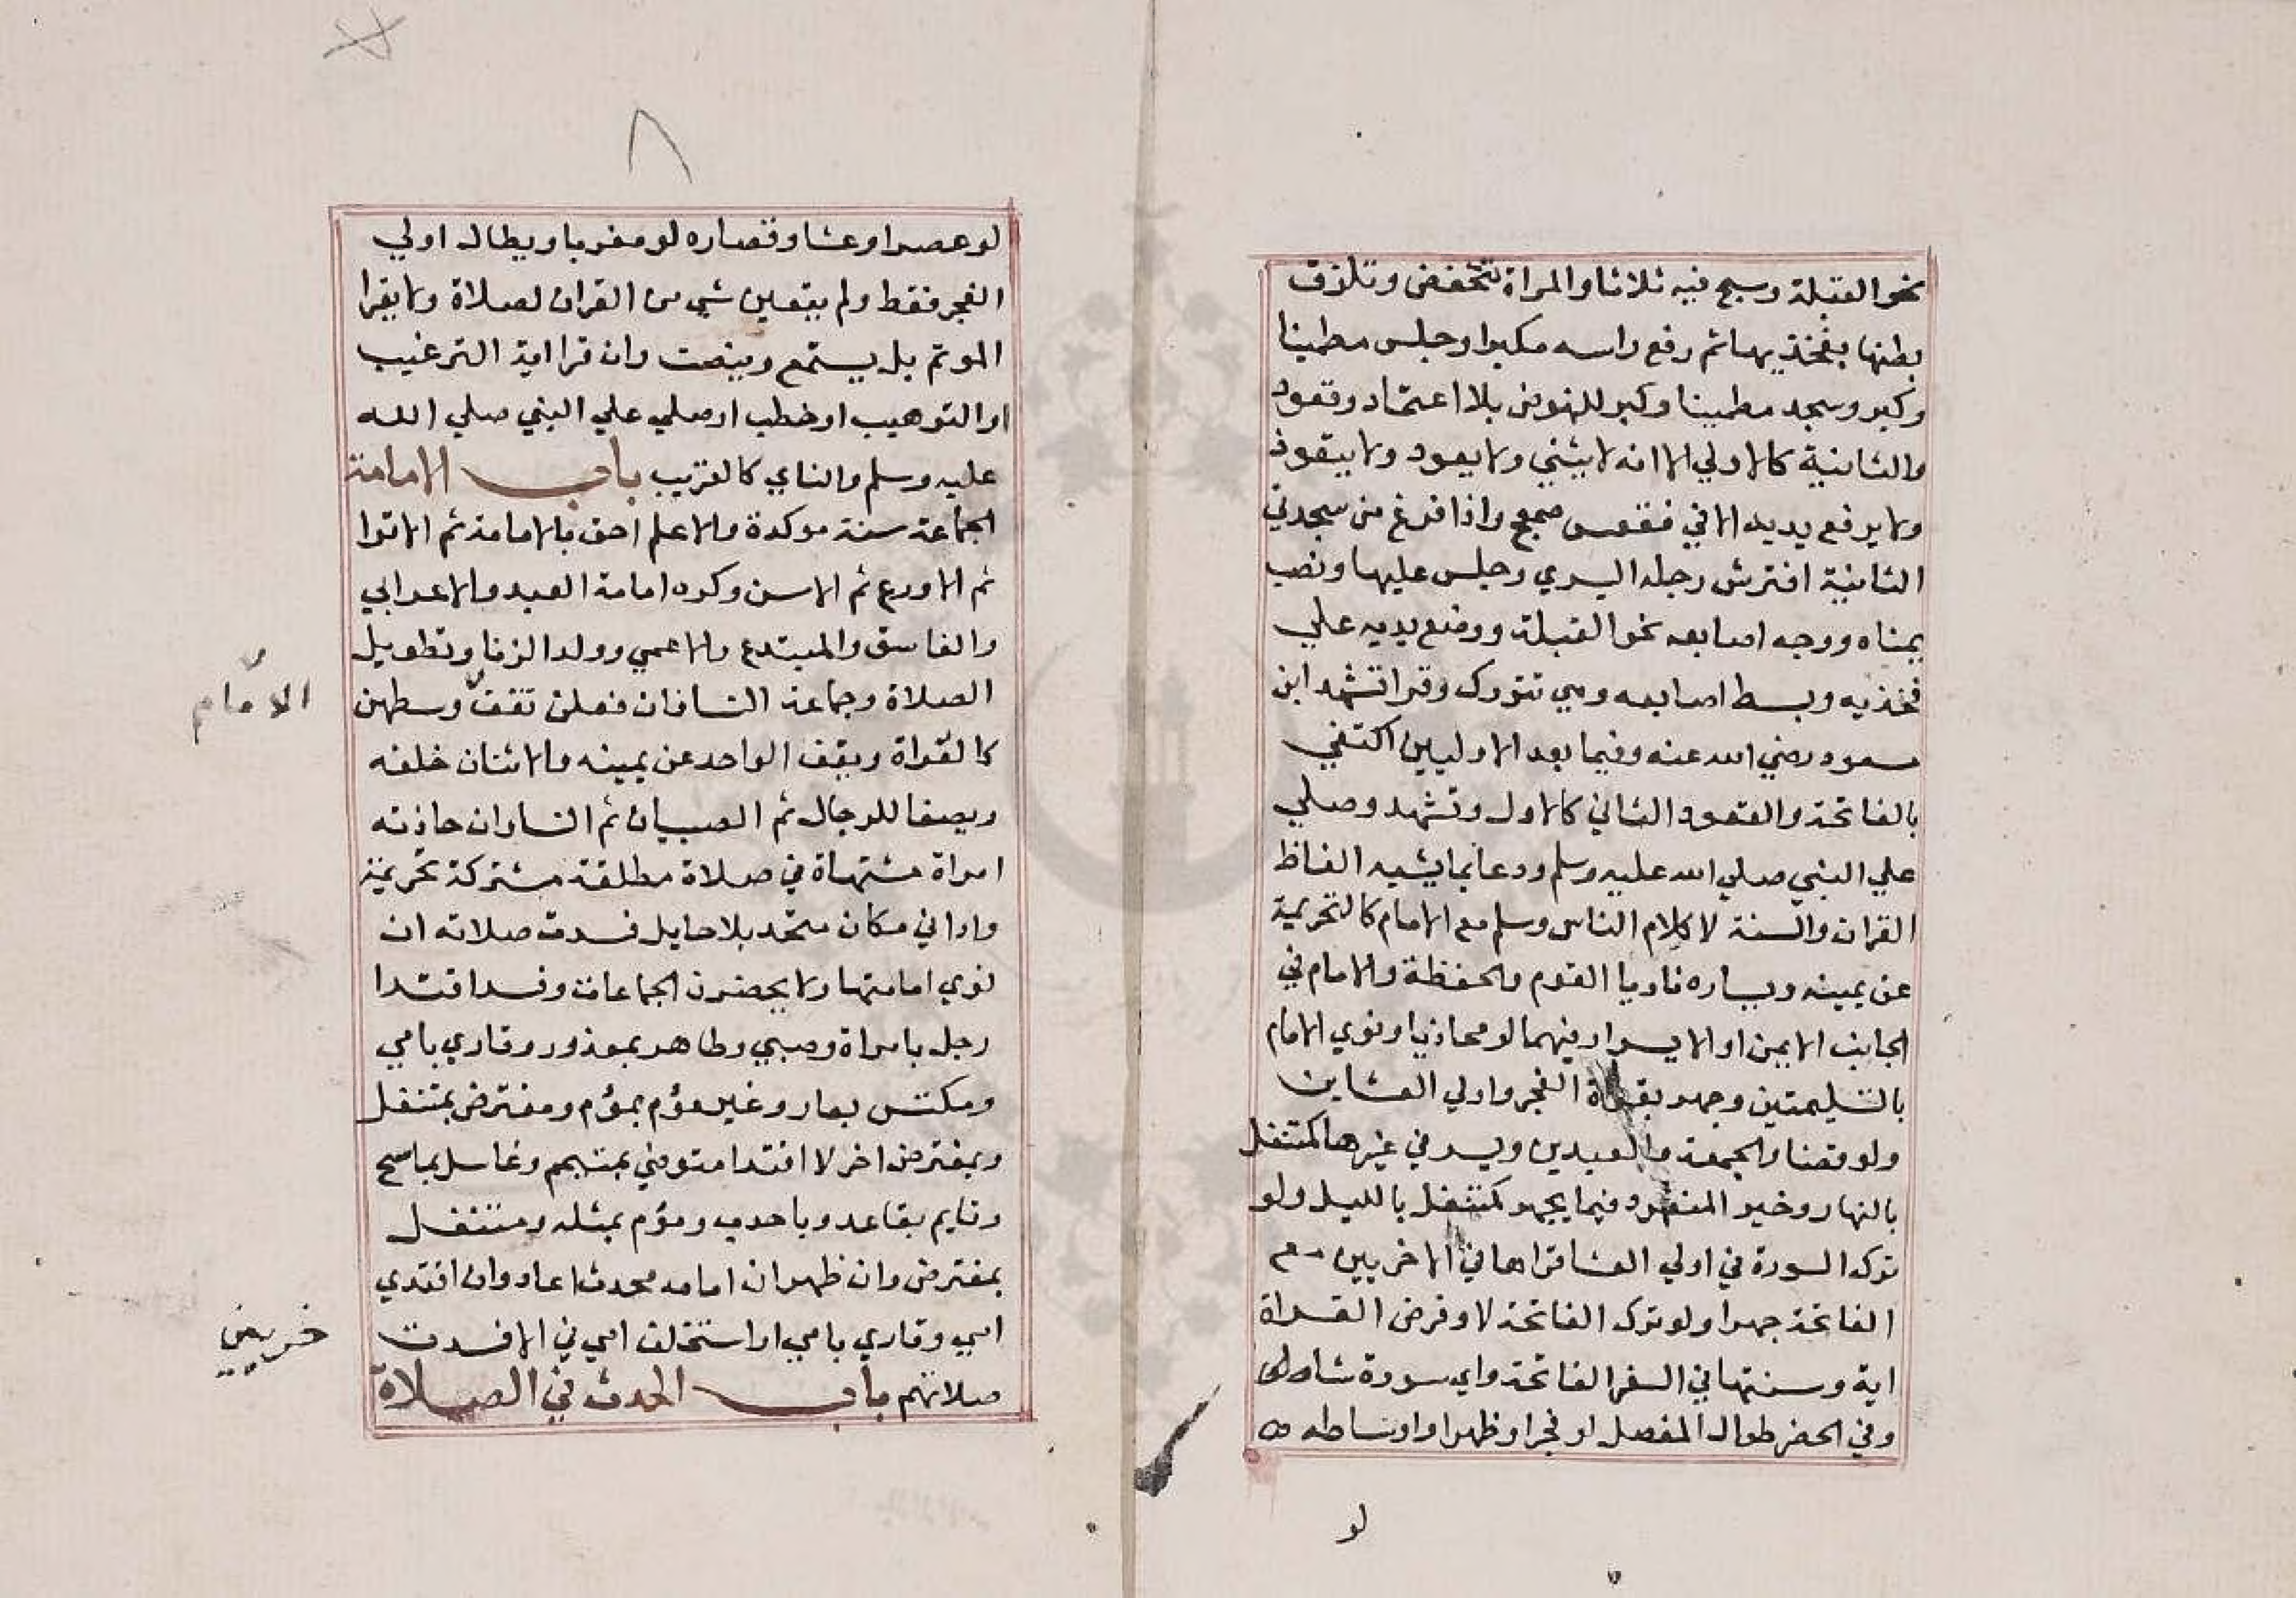 نحو القبلة وسبح فيه ثلاثا والمراة تنخفض وتلزق
بطنها بفخذيها ثم رفع راسه مكبرا وجلس مطمينا
وكبر وسجد مطمينا وكبر للنهوض بلا اعتماد وقعود
والثانية كالاولي الا انه لا يثني ولا يعود ولا يتعوذ
ولا يرفع يديه الا في فقعس صمعج واذا فرغ من سجدتي
الثانية افترش رجله اليسري وجلس عليها ونصب
يمناه ووجه اصابعه نحو القبلة ووضع يديه علي
فخذيه وبسط اصابعه وهي تتورك وقرا تشهد ابن
مسعود رضي الله عنه وفيما بعد الاوليين اكتفي
بالفاتحة والقعود الثاني كالاول وتشهد وصلي
علي النبي صلي الله عليه وسلم ودعا بما يشبه الفاظ
القران والسنة لا كلام الناس وسلم مع الامام كالتحريمة
عن يمينه ويساره ناويا القوم والحفظة والامام في
الجانب الايمن او الايسر او فيهما لو محاذيا ونوي الامام
بالتسليمتين وجهر بقراة الفجر واولي العشاين
ولو قضا والجمعة والعيدين ويسر في غيرها كمتنفل
بالنهار وخير المنفرد فيما يجهر كمتنفل بالليل ولو
ترك السورة في اولي العشا قراها في الاخريين مع
الفاتحة جهرا ولو ترك الفاتحة لا وفرض القراة
اية وسنتها في السفر الفاتحة واي سورة شا
وفي الحضر طوال المفصل لو فجرا وظهرا واوساطه
لو
٨
لو عصرا وعشا وقصاره لو مغربا ويطال اولي
الفجر فقط ولم يتعين شي من القران لصلاة ولا يقرا
الموتم بل يستمع وينصت وان قرا اية الترغيب
او الترهيب او خطب او صلي علي النبي صلي الله
عليه وسلم والناي كالقريب باب الامامة
الجماعة سنة موكدة والاعلم احق بالامامة ثم الاقرا
ثم الاورع ثم الاسن وكره امامة العبد والاعرابي
والفاسق والمبتدع والاعمي وولد الزنا وتطويل
الصلاة وجماعة النسا فان فعلن تقف وسطهن
الامام
كالعراة ويقف الواحد عن يمينه والاثنان خلفه
ويصف الرجال ثم الصبيان ثم النسا وان حاذته
امراة مشتهاة في صلاة مطلقة مشتركة تحريمة
وادا في مكان متحد بلا حايل فسدت صلاته ان
نوي امامتها ولا يحضرن الجماعات وفسد اقتدا
رجل بامراة وصبي وطاهر بمعذور وقاري بامي
ومكتس بعار وغير مؤم بمؤم ومفترض بمتنفل
وبمفترض اخر لا اقتدا متوضي بمتيمم وغاسل بماسح
وقايم بقاعد وباحدب ومؤم بمثله ومتنفل
بمفترض وان ظهر ان امامه محدث اعاد وان اقتدي
امي وقاري بامي او استخلف امي في الا فسدت
صلاتهم باب الحدث في الصلاة